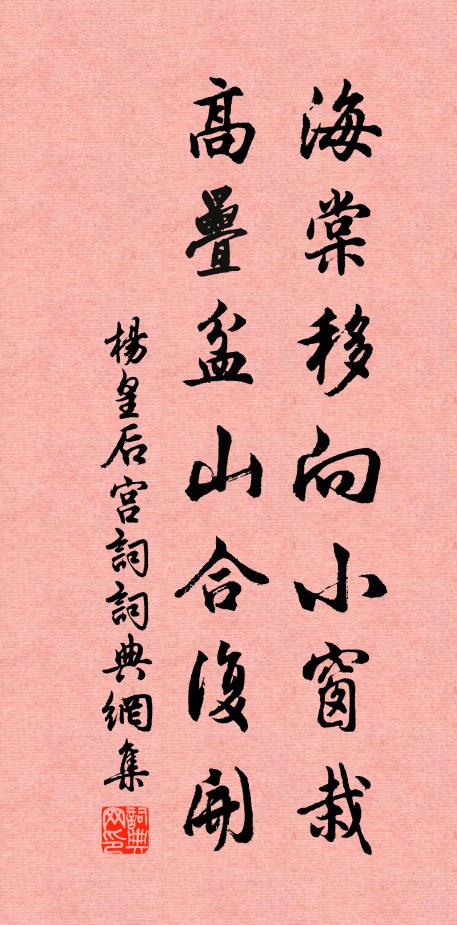 海棠移向小窗栽
高疊盆山合復開
楊皇后宮詞詞典網集
詞典网印